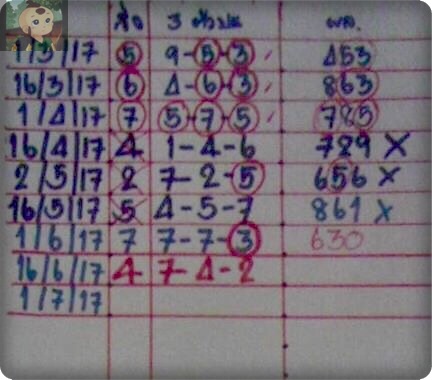 1/3/17 5 9-5-3 453
16/3/17 6 4-6-3 863
1/4/17 7 5-7-5 785
16/4/17 4 1-4-6 729 X
2/5/17 2 7-2-5 656 X
16/5/17 5 4-5-7 861 X
1/6/17 7 7-7-3 630
16/6/17 4 7-4-2
1/7/17